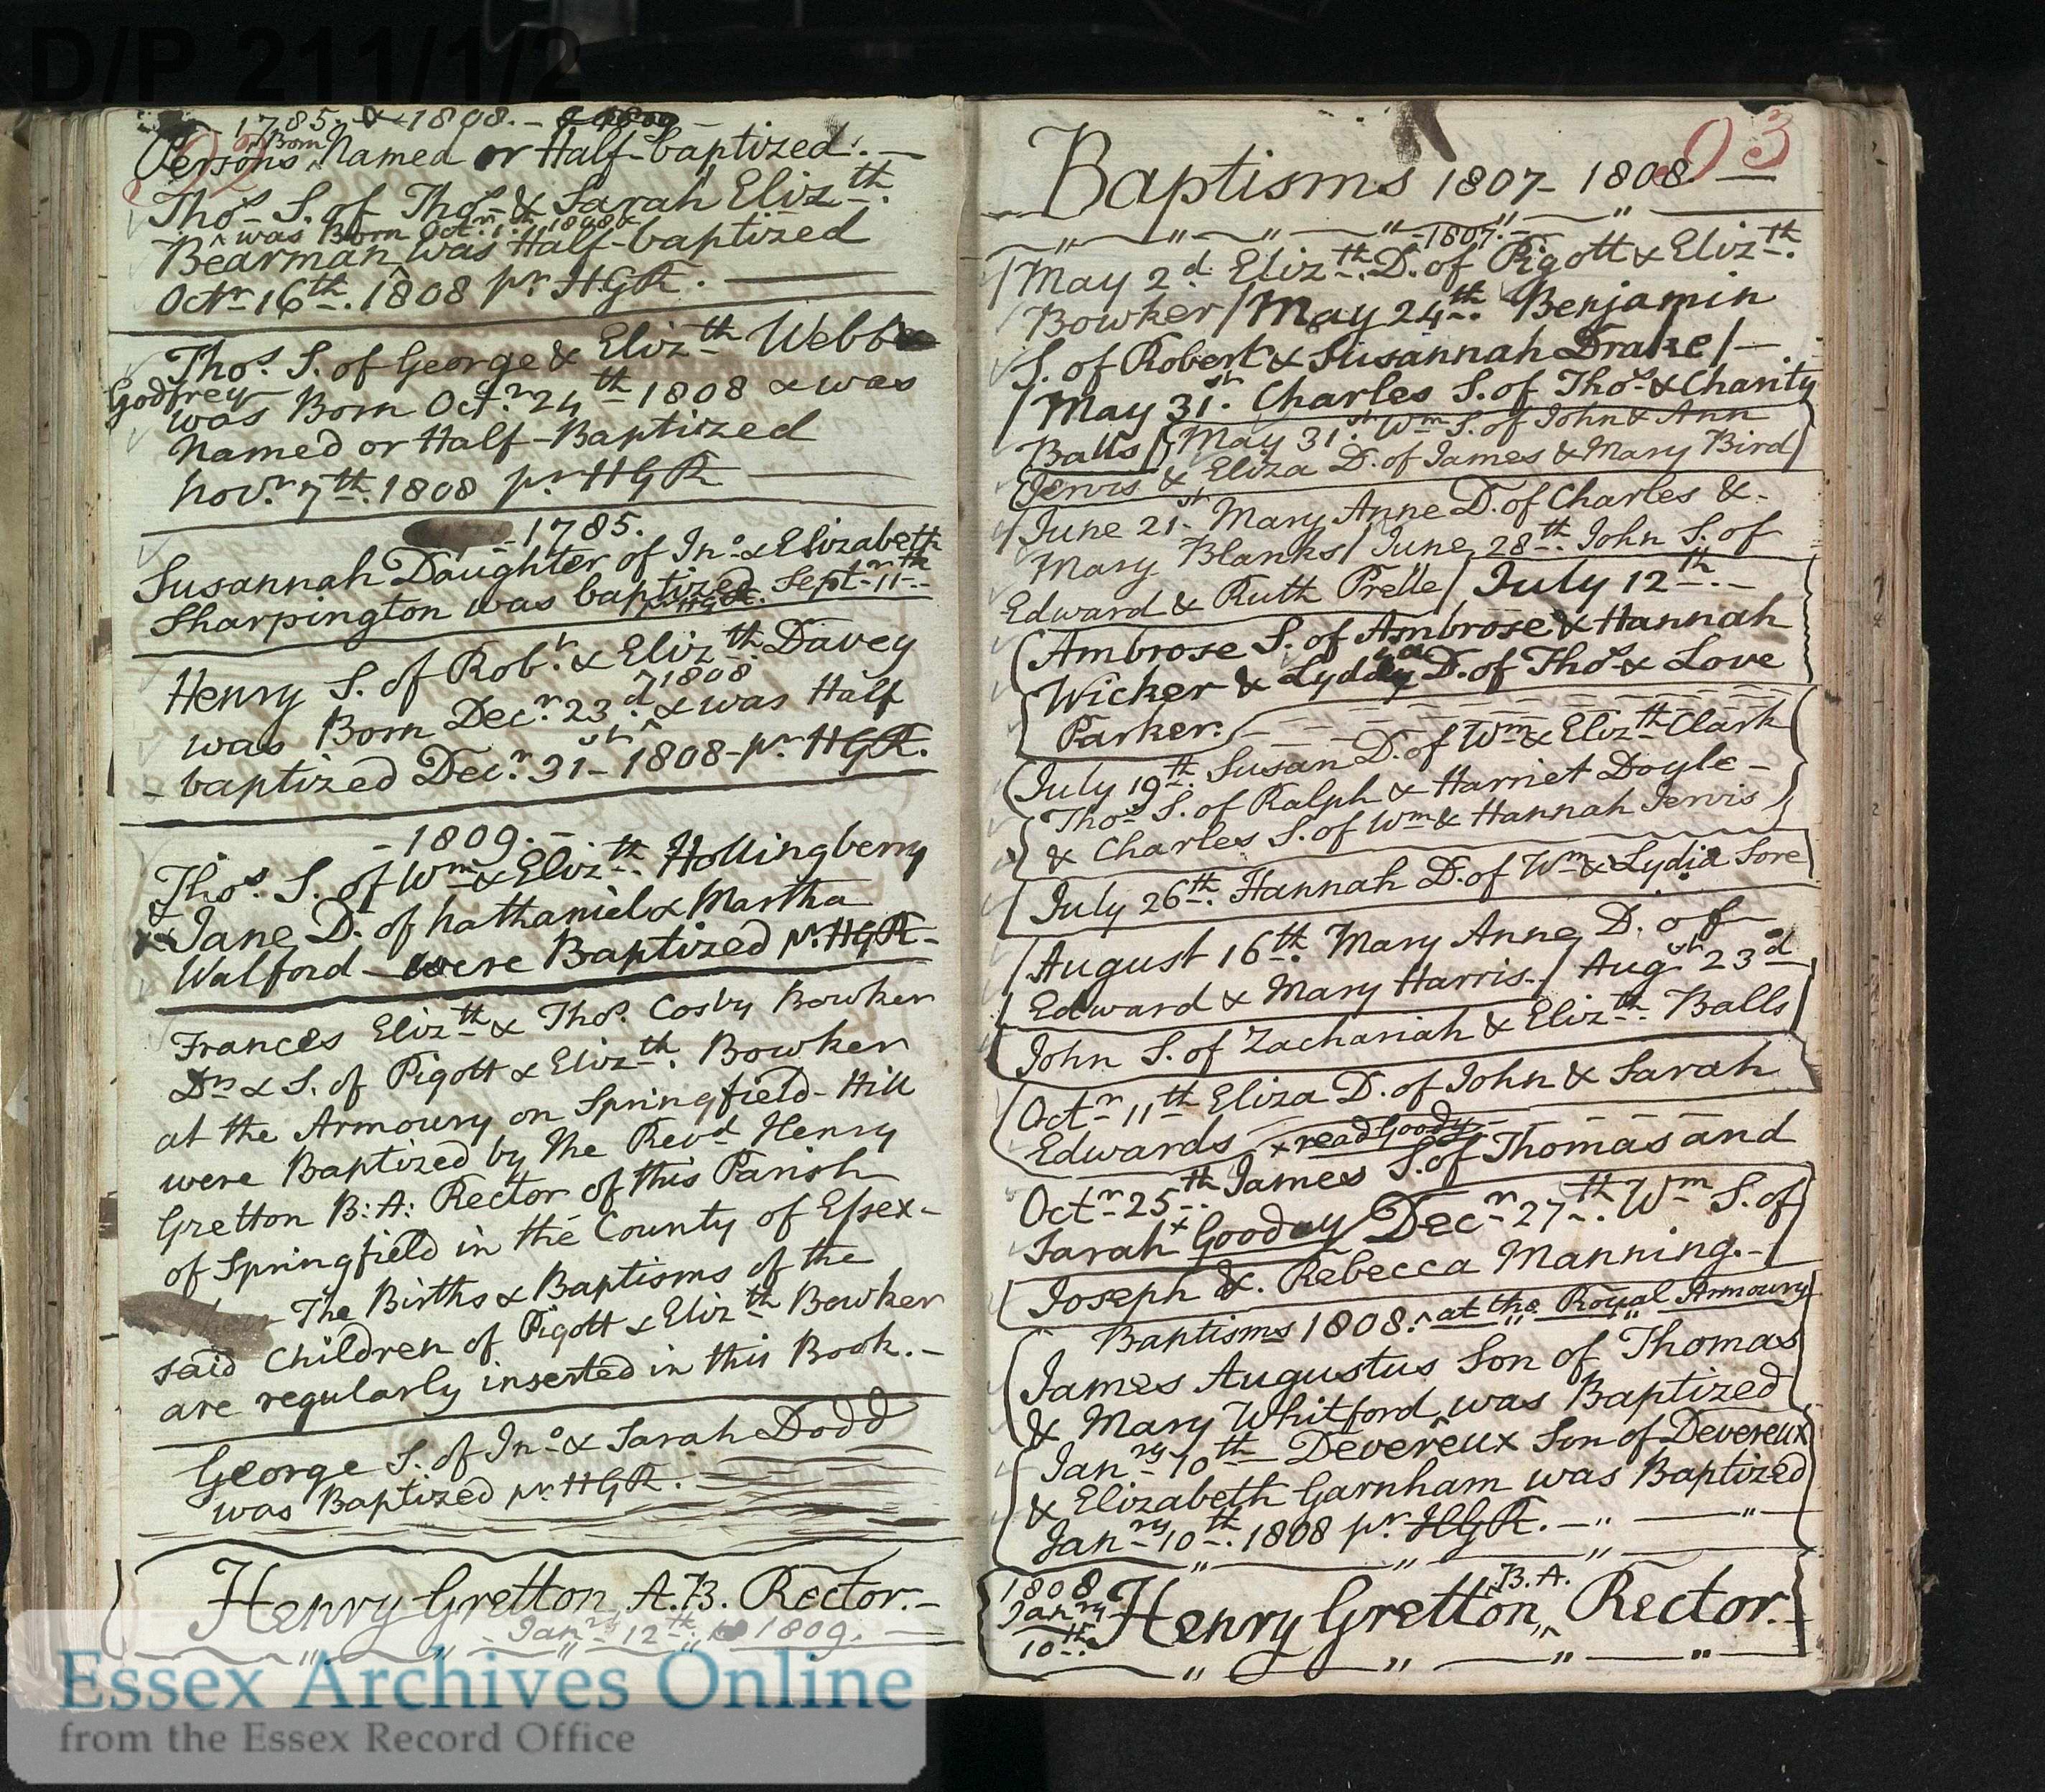 D/P 211/1/2
1785. & 1808. -
Persons Born Named or Half-baptized. -
Thos. S. of Thos. & Sarah Elizth.
was Born Octr. 1st. 1808 &
Bearman was Half-baptized
Octr. 16th. 1808 pr. HGR.
Thos. S. of George & Elizth Webb
Godfrey
was Born Octr. 24th 1808 & was
Named or Half-Baptized
Novr. 7th. 1808 pr. HGR
- 1785.
Susannah Daughter of Jno. & Elizabeth
Sharpington was baptized Septr. 11th.
pr HGR.
Henry S. of Robt. & Elizth. Davey
was Born Decr. 23d. 1808 & was Half
- baptized Decr. 31st - 1808 - pr. HGR.
- 1809. -
Thos. S. of Wm & Elizth. Hollingberry
& Jane D. of Nathaniel & Martha
Walford - were Baptized pr. HGR -
Frances Elizth & Thos. Cosby Bowker
Dr. & S. of Pigott & Elizth. Bowker
at the Armoury on Springfield-Hill
were Baptized by the Revd Henry
Gretton B:A: Rector of this Parish
of Springfield in the County of Essex -
The Births & Baptisms of the
said Children of Pigott & Elizth Bowker
are regularly inserted in this Book. -
George S. of Jno. & Sarah Dodd
was Baptized pr. HGR.
Henry Gretton A.B. Rector. -
Janry. 12th. 1809.
03
Baptisms 1807 - 1808. -
1807. -
May 2d. Elizth. D. of Pigott & Elizth.
Bowker / May 24th. Benjamin
S. of Robert & Susannah Drake / -
May 31st. Charles S. of Thos. & Charity
Balls / May 31st. Wm S. of John & Ann
Jervis & Eliza D. of James & Mary Bird
June 21st. Mary Anne D. of Charles & -
Mary Blanks / June 28th. John S. of
Edward & Ruth Prelle / July 12th. -
Ambrose S. of Ambrose & Hannah
Wicker & Lydda D. of Thos. & Love
Parker.
July 19th. Susan D. of Wm & Elizth Clark
Thos. S. of Ralph & Harriet Doyle -
& Charles S. of Wm & Hannah Jervis
July 26th. Hannah D. of Wm & Lydia Sore
August 16th. Mary Anne D. of
Edward & Mary Harris. / Augst 23d
John S. of Zachariah & Elizth. Balls
Octr. 11th Eliza D. of John & Sarah
Edwards x read Goody
Octr. 25th. James S. of Thomas and
Sarah x Gooday / Decr. 27th. Wm S. of
Joseph &. Rebecca Manning. -
Baptisms 1808. at the Royal Armoury
James Augustus Son of Thomas
& Mary Whitford was Baptized
Janry. 10th - Devereux Son of Devereux
& Elizabeth Garnham was Baptized
Janry. 10th. 1808 pr HGR. -
1808
Janry
10th.
Henry Gretton, B.A. Rector. -
Essex Archives Online
from the Essex Record Office